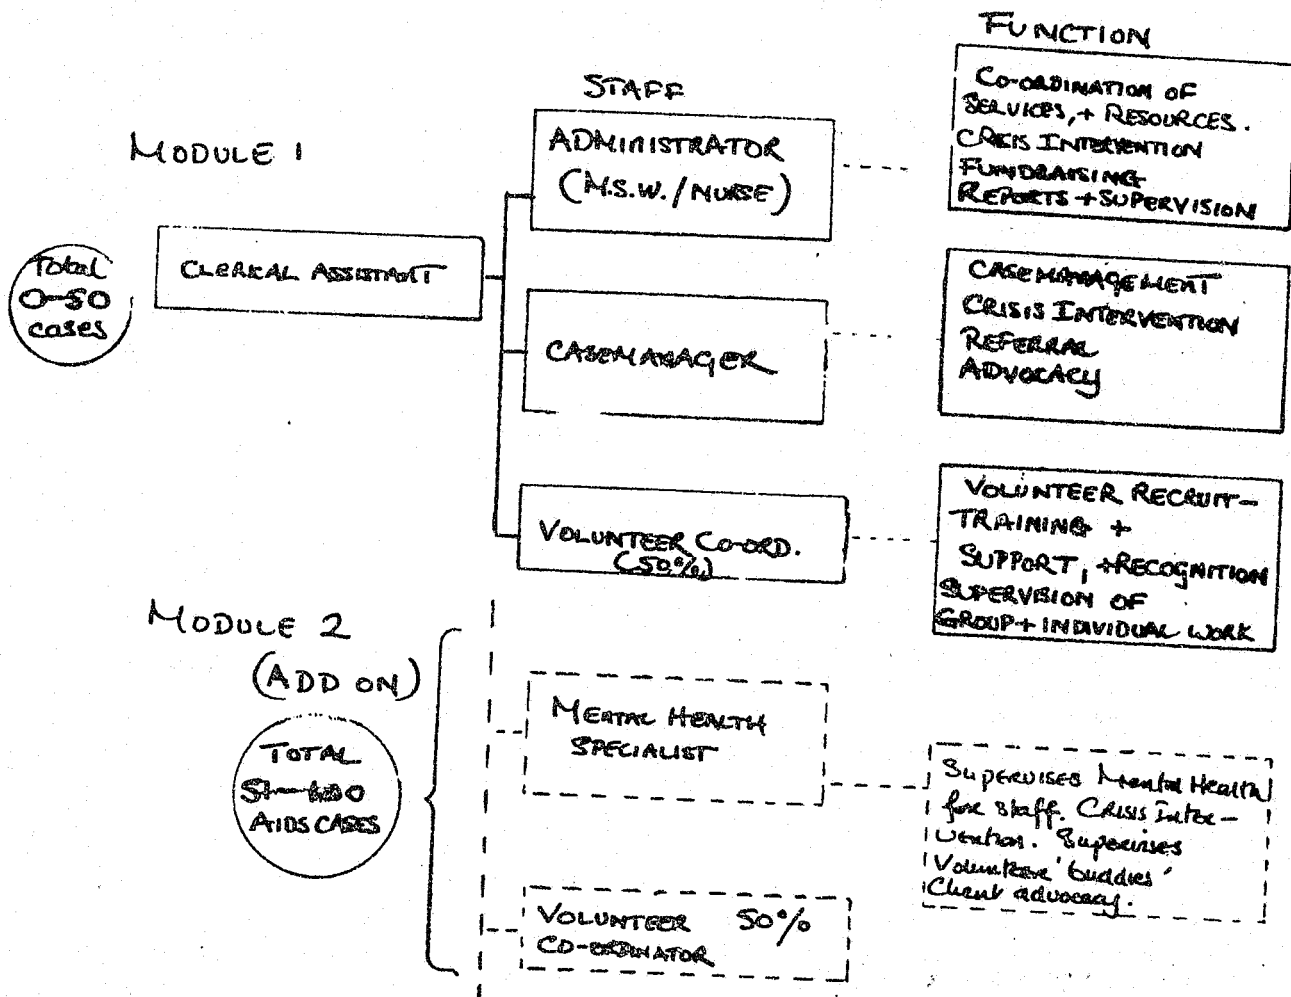 FUNCTION
STAFF
MODULE 1
Total
0-50
cases
CLERICAL ASSISTANT
ADMINISTRATOR
(M.S.W./NURSE)
CO-ORDINATION OF
SERVICES, + RESOURCES.
CRISIS INTERVENTION
FUNDRAISING
REPORTS + SUPERVISION
CASEMANAGER
CASEMANAGEMENT
CRISIS INTERVENTION
REFERRAL
ADVOCACY
VOLUNTEER CO-ORD.
(50%)
VOLUNTEER RECRUIT-
TRAINING +
SUPPORT, + RECOGNITION
SUPERVISION OF
GROUP + INDIVIDUAL WORK
MODULE 2
(ADD ON)
TOTAL
AIDS CASES
MENTAL HEALTH
SPECIALIST
Supervises Mental Health
for staff. Crisis Inter-
vention. Supervises
Volunteer 'buddies'
Client advocacy.
VOLUNTEER 50%
CO-ORDINATOR